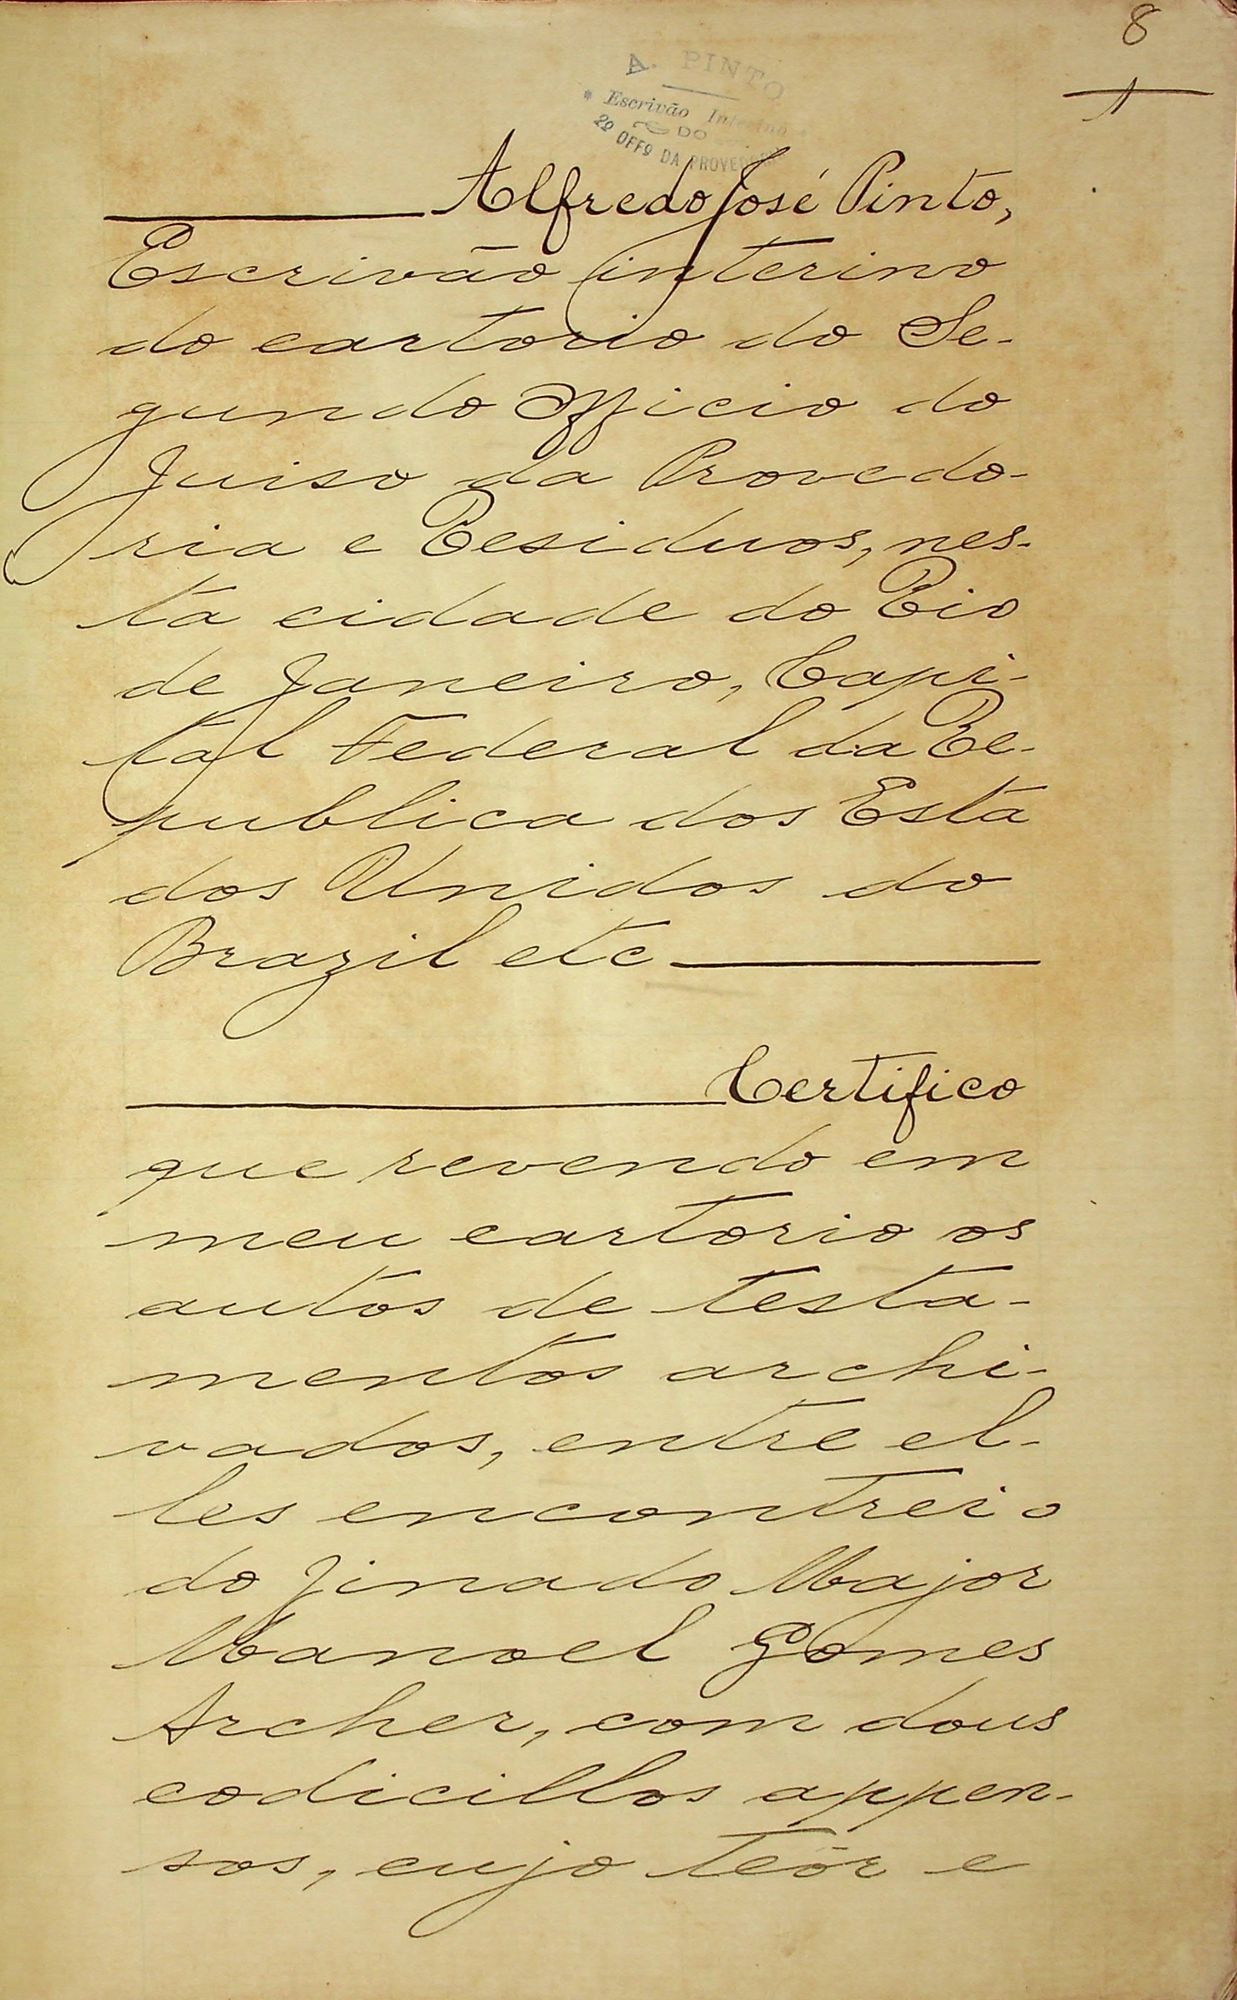 8
1
A. PINTO
Escrivão Interino
DO
2º OFFº DA PROVEDORIA
Alfredo José Pinto,
Escrivão interino
do cartorio do Se-
gundo Officio do
Juiso da Provedo-
ria e Residuos, nes-
ta cidade do Rio
de Janeiro, Capi-
tal Federal da Re-
publica dos Esta
dos Unidos do
Brazil etc
Certifico
que revendo em
meu cartorio os
autos de testa-
mentos archi-
vados, entre el-
les encontrei o
do finado Major
Manoel Gomes
Archer, com dous
codicillos appen-
sos, cujo teôr e